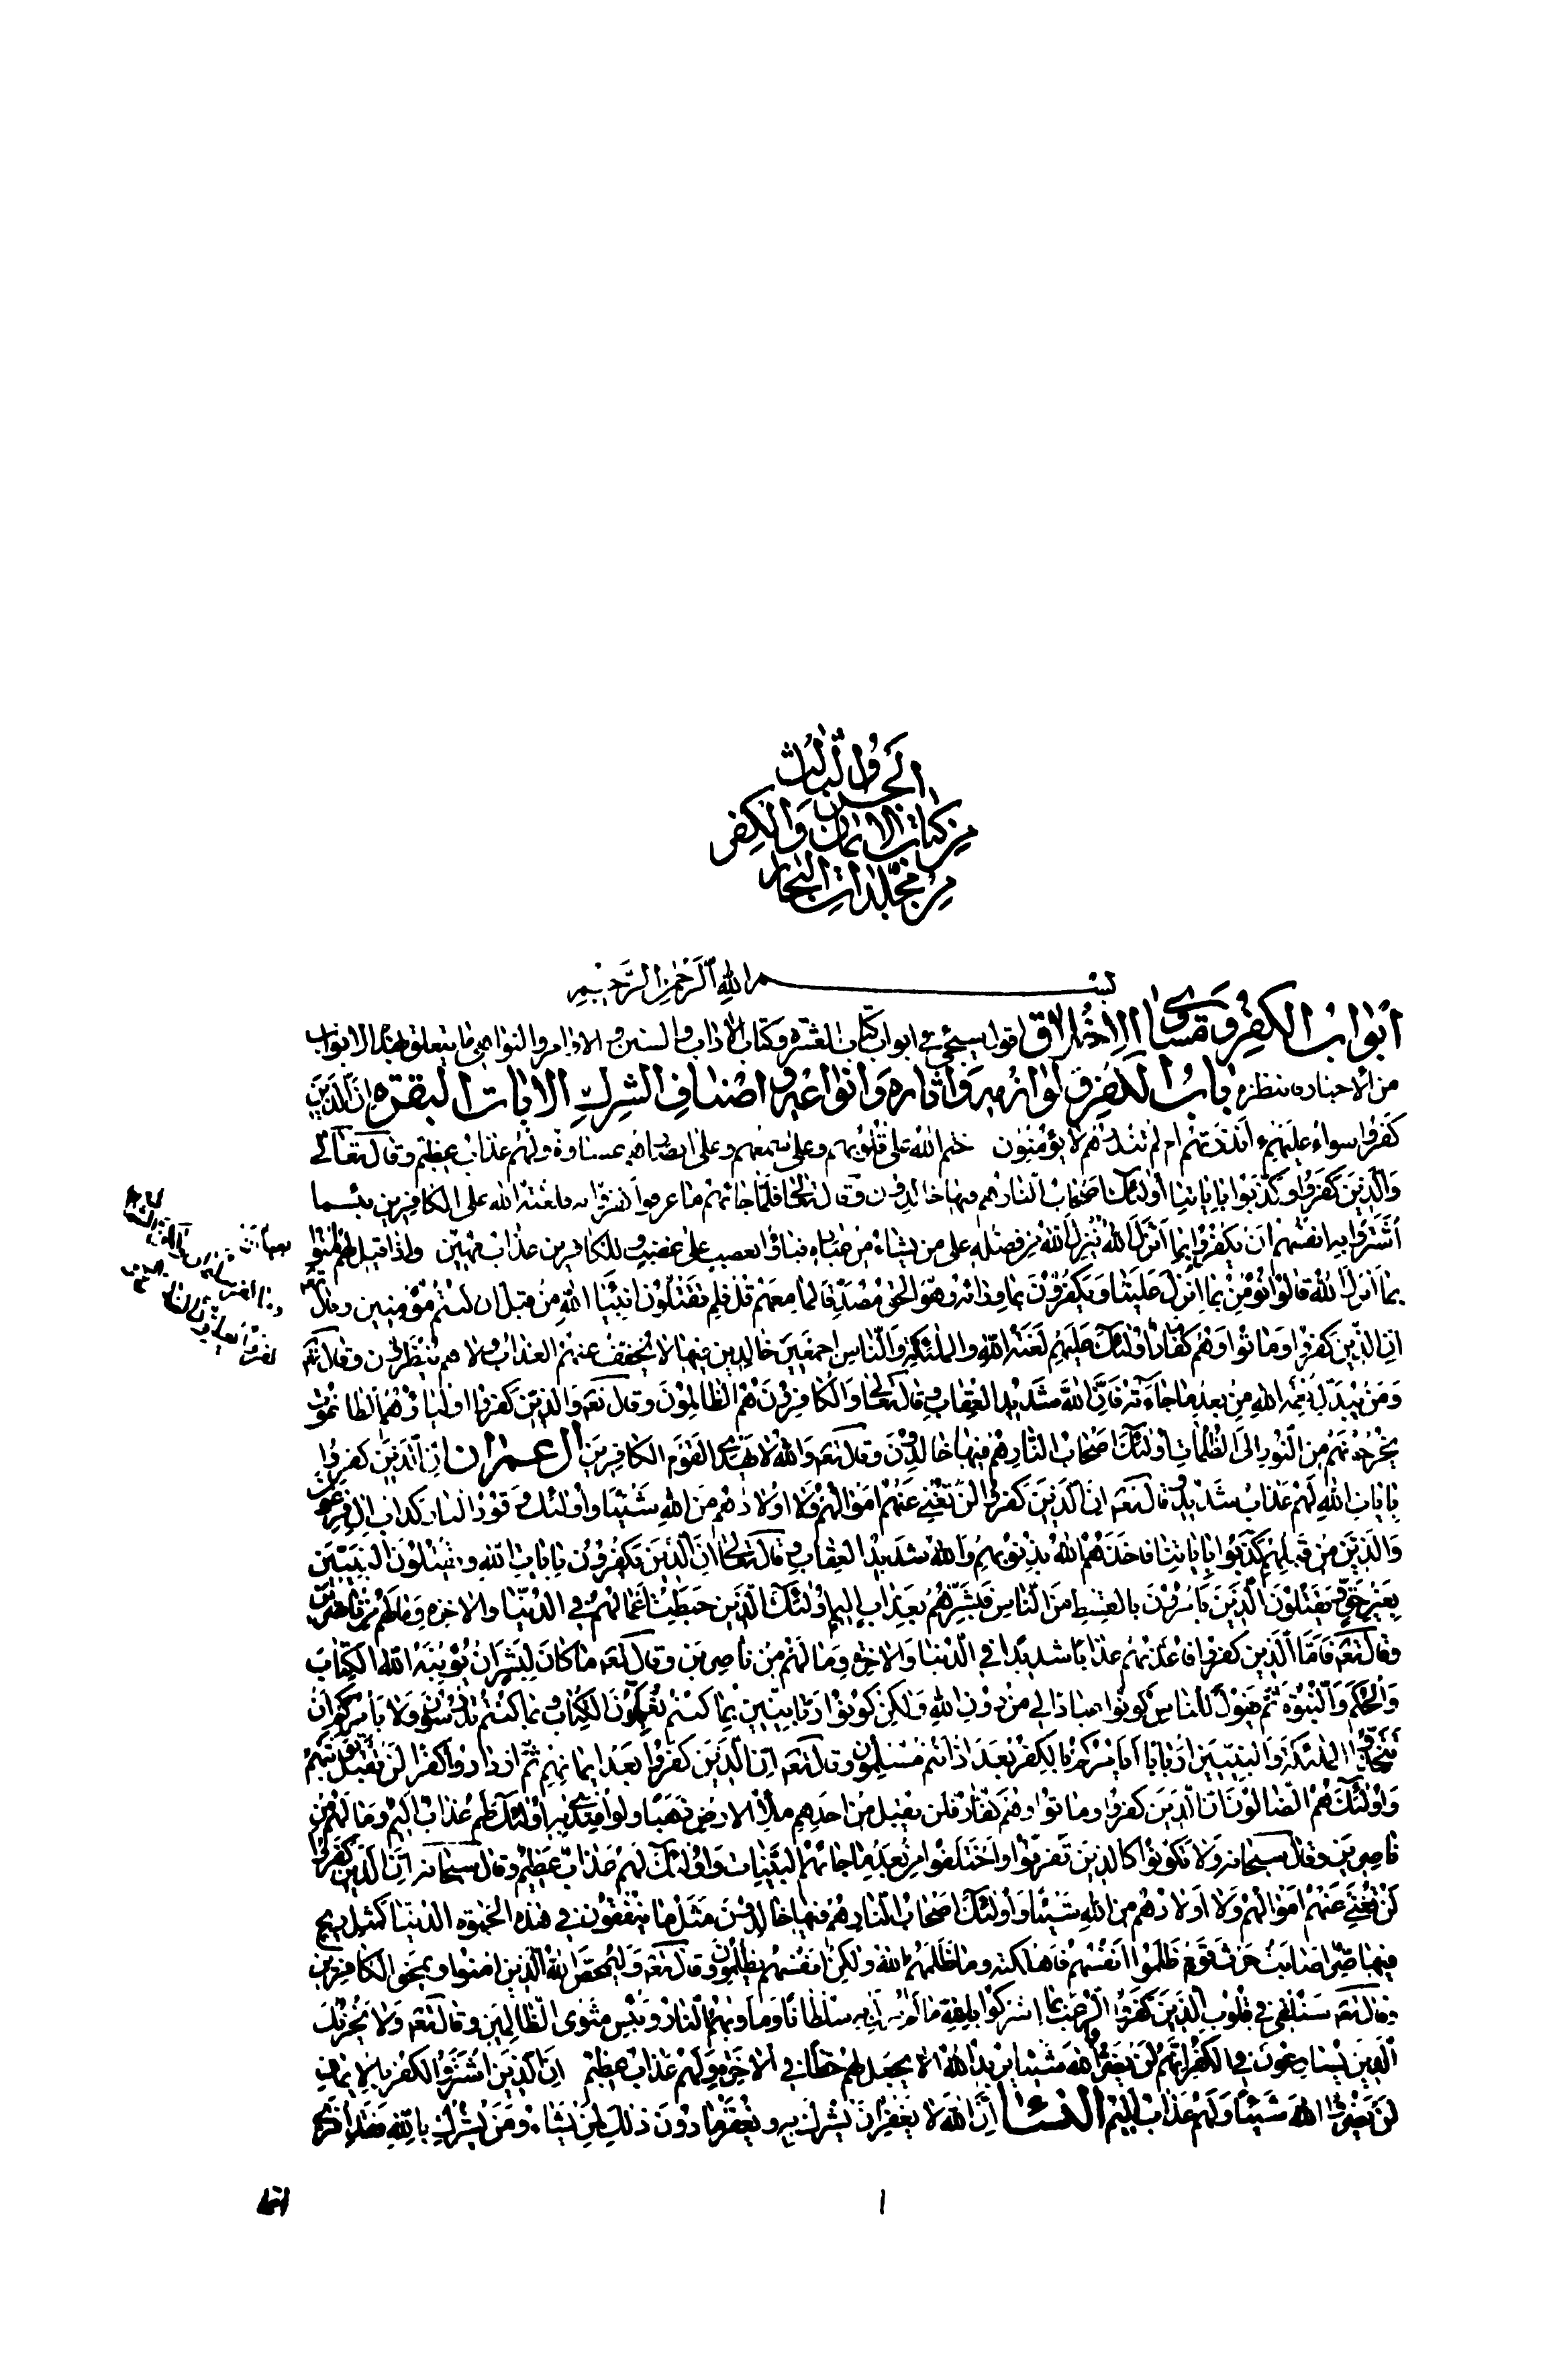 الجزء الثالث
من كتاب الايمان والكفر
من مجلدات البحار
بسم الله الرحمن الرحيم
ابواب الكفر ومساوى الاخلاق اقول سيجئ في ابواب كتاب العشرة وكتاب الاداب والسنن و الاوامر والنواهي ما يتعلق بهذه الابواب
من الاخبار فانتظره باب الكفر ولوازمه واثاره وانواعه واصناف الشرك الايات البقره ان الذين
كفروا سواء عليهم ءانذرتهم ام لم تنذرهم لا يؤمنون ختم الله على قلوبهم وعلى سمعهم وعلى ابصارهم غشاوة ولهم عذاب عظيم وقال تعالى
والذين كفروا وكذبوا باياتنا اولئك اصحاب النار هم فيها خالدون وقال تعالى فلما جائهم ما عرفوا كفروا به فلعنة الله على الكافرين بئسما
اشتروا به انفسهم ان يكفروا بما انزل الله بغيا ان ينزل الله من فضله على من يشاء من عباده فباؤا بغضب على غضب وللكافرين عذاب مهين واذا قيل لهم امنوا
بما انزل الله قالوا نؤمن بما انزل علينا ويكفرون بما ورائه وهو الحق مصدقا لما معهم قل فلم تقتلون انبياء الله من قبل ان كنتم مؤمنين وقال
ان الذين كفروا وماتوا وهم كفار اولئك عليهم لعنة الله والملئكة والناس اجمعين خالدين فيها لا يخفف عنهم العذاب ولا هم ينظرون وقال تعه
ومن يبدل نعمة الله من بعد ما جاءته فان الله شديد العقاب وقال تعالى والكافرون هم الظالمون وقال تعه والذين كفروا اولياؤهم الطاغوت
يخرجونهم من النور الى الظلمات اولئك اصحاب النار هم فيها خالدون وقال تعه والله لا يهدى القوم الكافرين ال عمران ان الذين كفروا
بايات الله لهم عذاب شديد وقال تعه ان الذين كفروا لن تغني عنهم اموالهم ولا اولادهم من الله شيئا واولئك هم وقود النار كداب ال فرعون
والذين من قبلهم كذبوا باياتنا فاخذهم الله بذنوبهم والله شديد العقاب وقال تعالى ان الذين يكفرون بايات الله ويقتلون النبيين
بغير حق ويقتلون الذين يامرون بالقسط من الناس فبشرهم بعذاب اليم اولئك الذين حبطت اعمالهم في الدنيا والاخره وما لهم من ناصرين
وقال تعه فاما الذين كفروا فاعذبهم عذابا شديدا في الدنيا والاخرة وما لهم من ناصرين وقال تعه ما كان لبشر ان يؤتيه الله الكتاب
والحكم والنبوة ثم يقول للناس كونوا عبادا لي من دون الله ولكن كونوا ربانيين بما كنتم تعلمون الكتاب وبما كنتم تدرسون ولا يامركم ان
تتخذوا الملئكة والنبيين اربابا ايامركم بالكفر بعد اذ انتم مسلمون وقال تعه ان الذين كفروا بعد ايمانهم ثم ازدادوا كفرا لن تقبل توبتهم
واولئك هم الضالون ان الذين كفروا وماتوا وهم كفار فلن يقبل من احدهم ملأ الارض ذهبا ولو افتدى به اولئك لهم عذاب اليم وما لهم من
ناصرين وقال سبحانه ولا تكونوا كالذين تفرقوا واختلفوا من بعد ما جائهم البينات واولئك لهم عذاب عظيم وقال سبحانه ان الذين كفروا
لن تغني عنهم اموالهم ولا اولادهم من الله شيئا واولئك اصحاب النار هم فيها خالدون مثل ما ينفقون في هذه الحيوة الدنيا كمثل ريح
فيها صر اصابت حرث قوم ظلموا انفسهم فاهلكته وما ظلمهم الله ولكن انفسهم يظلمون وقال تعه وليمحص الله الذين امنوا ويمحق الكافرين
وقال تعه سنلقى في قلوب الذين كفروا الرعب بما اشركوا بالله ما لم ينزل به سلطانا وماويهم النار وبئس مثوى الظالمين وقال تعه ولا يحزنك
الذين يسارعون في الكفر انهم لن يضروا الله شيئا يريد الله الا يجعل لهم حظا في الاخرة ولهم عذاب عظيم ان الذين اشتروا الكفر بالايمان
لن يضروا الله شيئا ولهم عذاب اليم النساء ان الله لا يغفر ان يشرك به ويغفر ما دون ذلك لمن يشاء ومن يشرك بالله فقد افترى
١
اثما